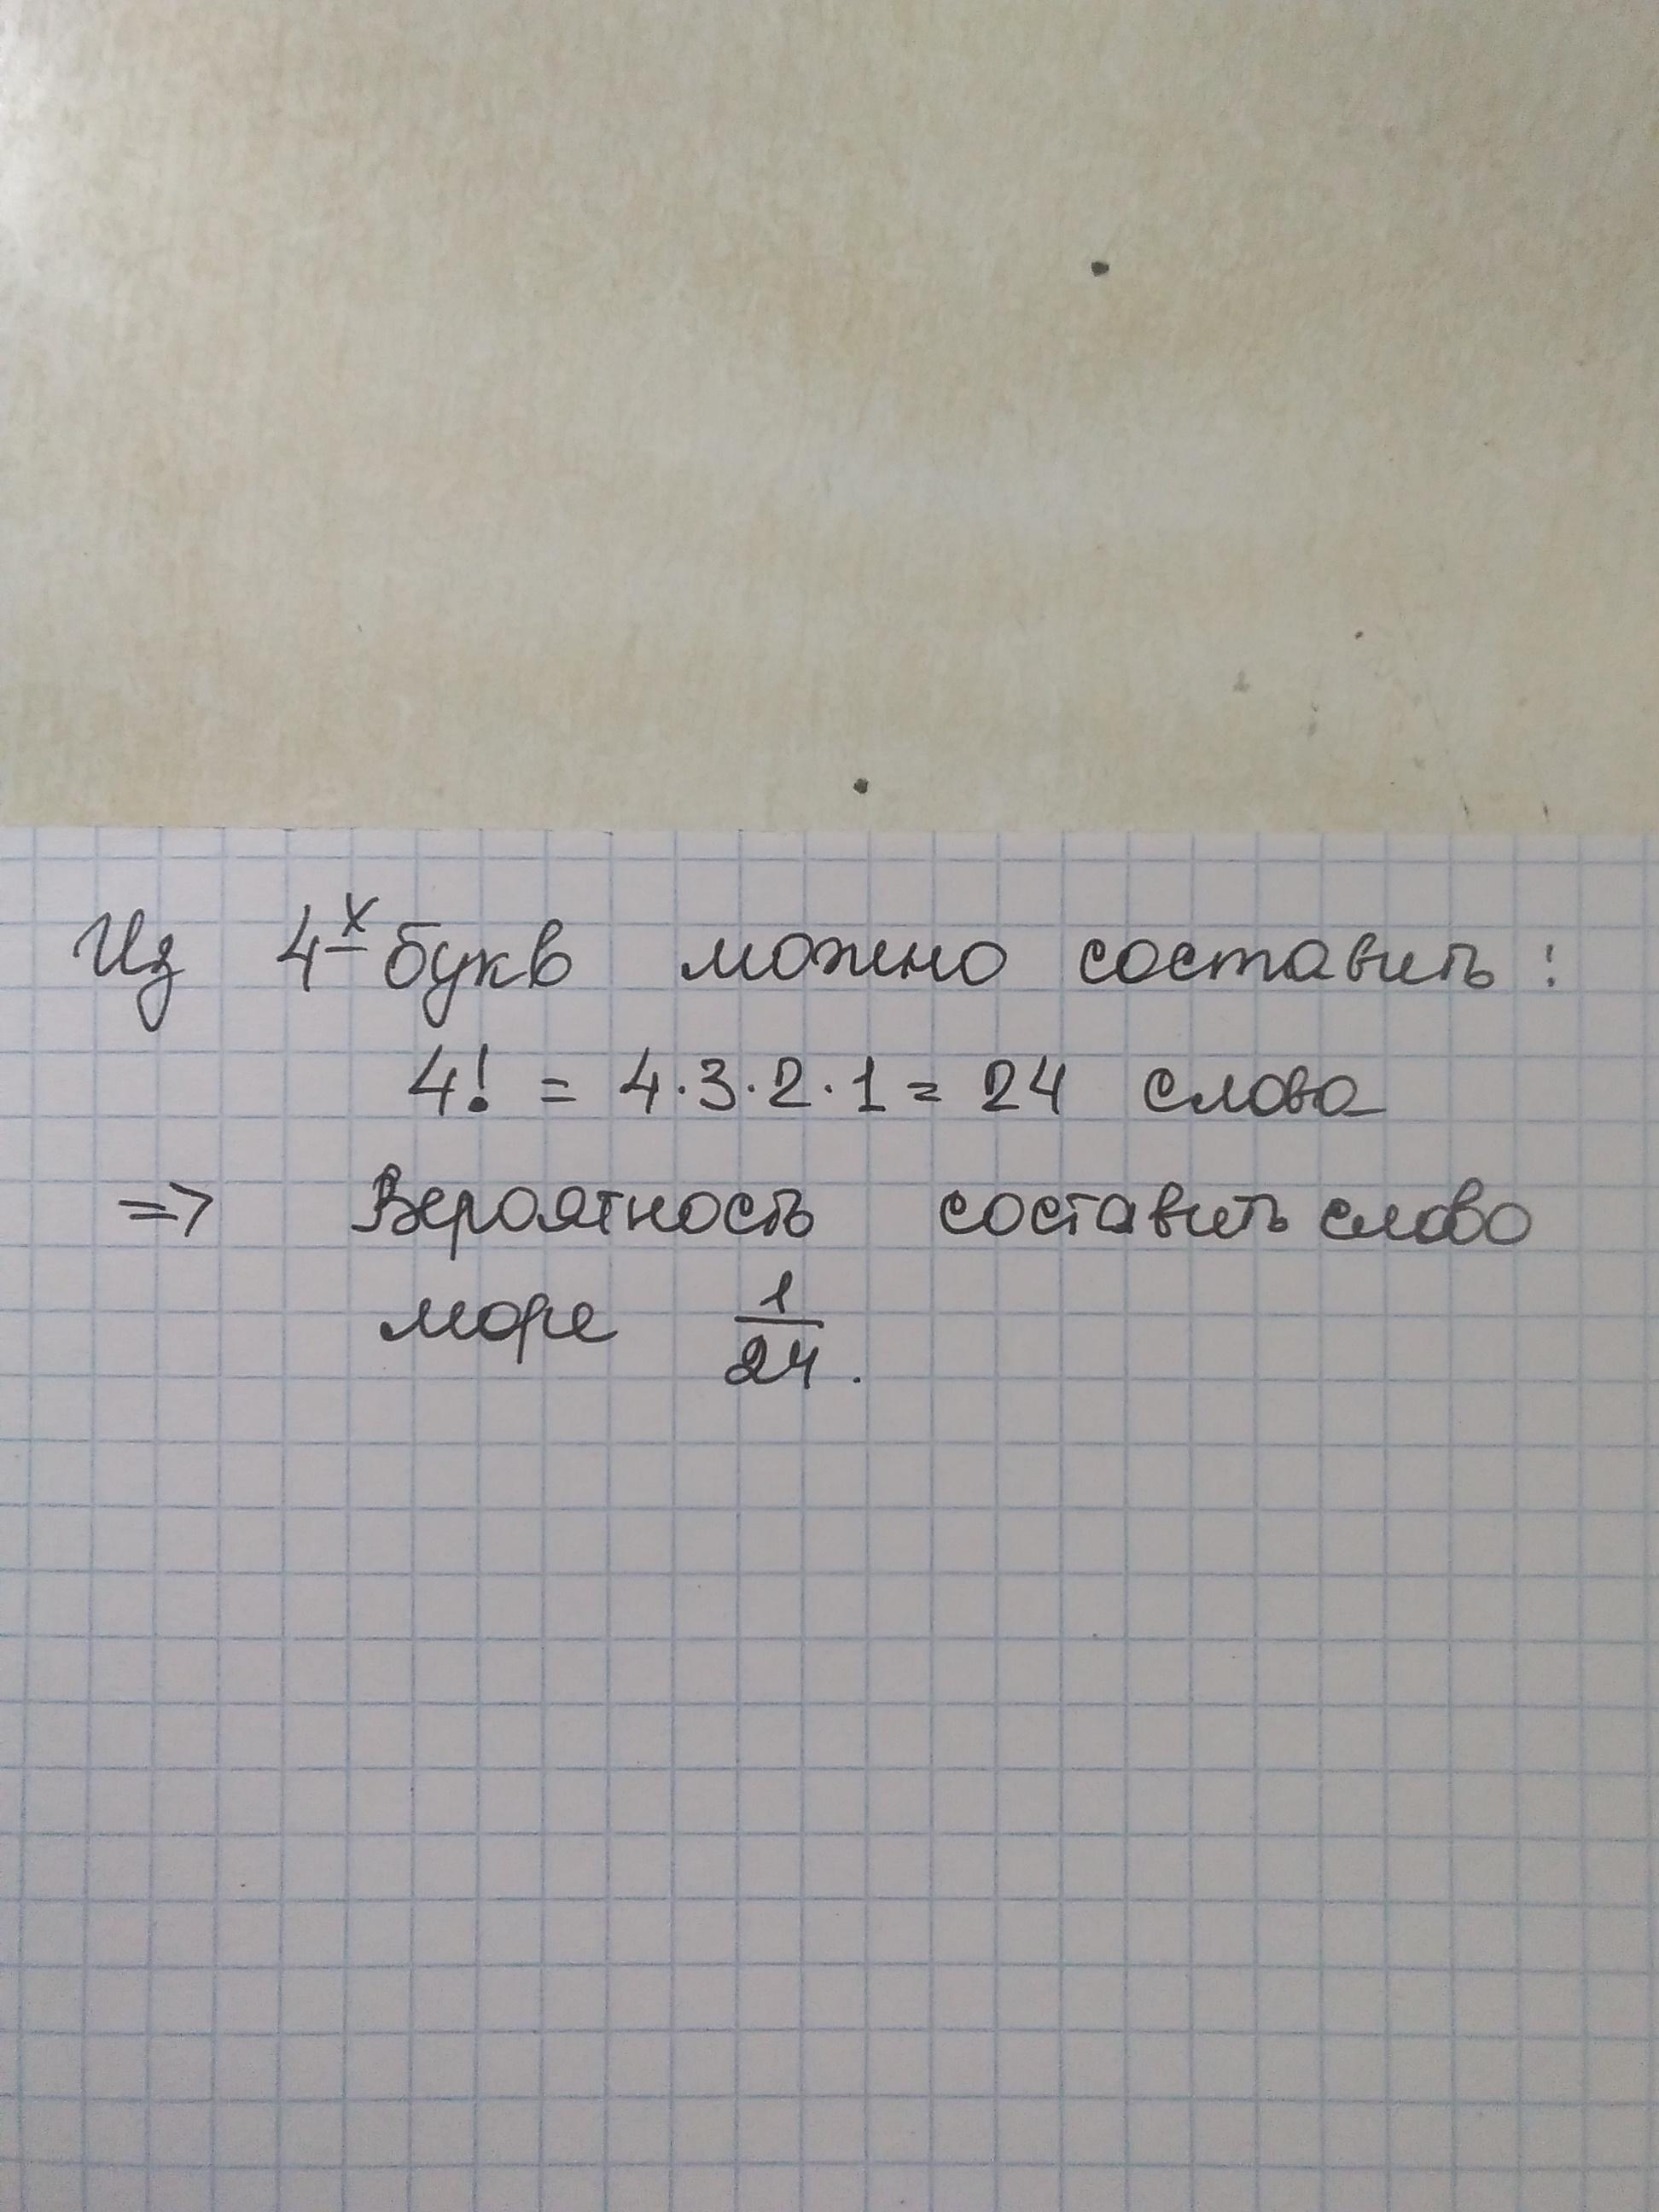 Из 4х букв можно составить:
4! = 4·3·2·1 = 24 слова
=> Вероятность составить слово
море 1/24.